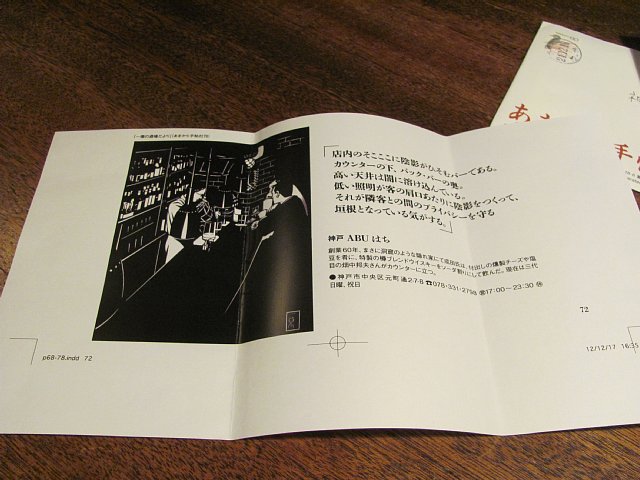 「一瓶の酒場だより」(あまから手帖刊78)
店内のそこここに陰影がひそむバーである。
カウンターの下、バック・バーの奥。
高い天井は闇に溶け込んでいる。
低い照明が客の肩口あたりに陰影をつくって、
それが隣客との間のプライバシーを守る
垣根となっている気がする。
神戸 ABU はち
創業60年、まさに洞窟のような隠れ家にて成田氏は、付出しの燻製チーズや塩
豆を肴に、特製の樽ブレンドウイスキーをソーダ割りにして飲んだ。現在は三代
目の畑中邦夫さんがカウンターに立つ。
●神戸市中央区元町通2-7-8 ☎078-331-2798 営17:00～23:30 休
日曜、祝日
72
p68-78.indd 72
12/12/17 16:35
あ
手